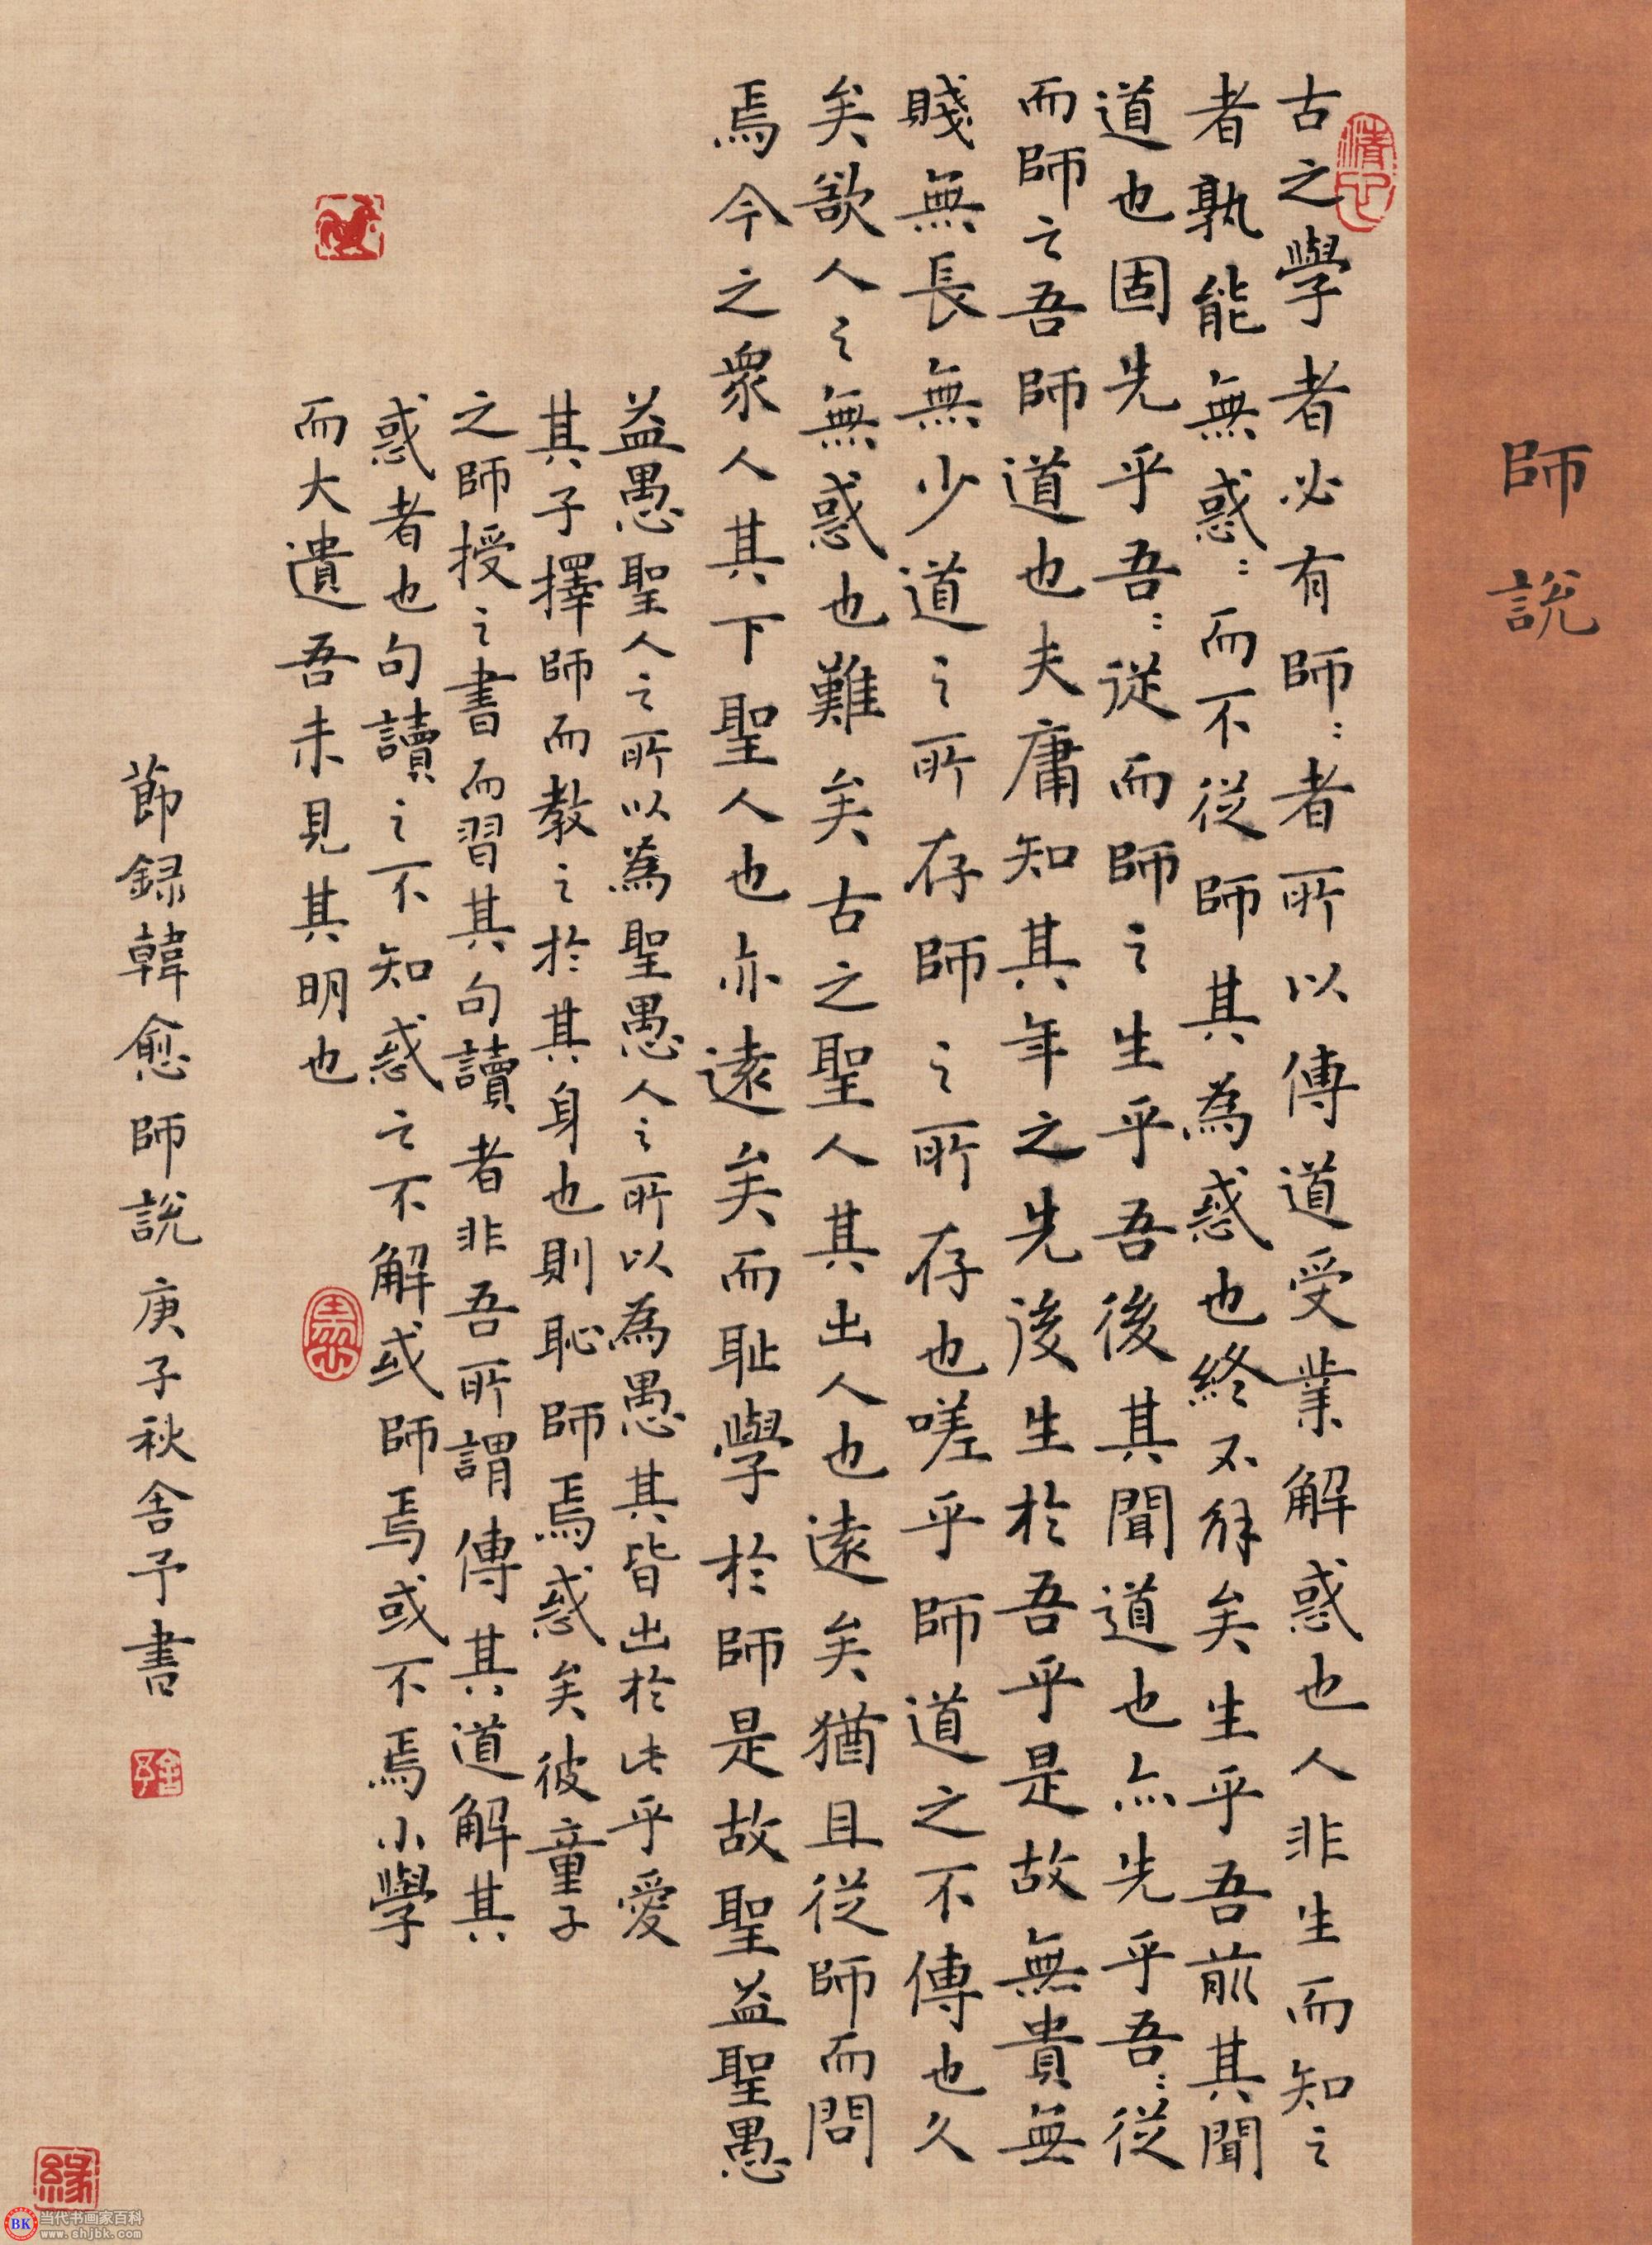 師說
古之學者必有師：者所以傳道受業解惑也人非生而知之
者孰能無惑：而不從師其為惑也終不解矣生乎吾前其聞
道也固先乎吾：從而師之生乎吾後其聞道也亦先乎吾：從
而師之吾師道也夫庸知其年之先後生於吾乎是故無貴無
賤無長無少道之所存師之所存也嗟乎師道之不傳也久
矣欲人之無惑也難矣古之聖人其出人也遠矣猶且從師而問
焉今之眾人其下聖人也亦遠矣而耻學於師是故聖益聖愚
益愚聖人之所以為聖愚人之所以為愚其皆出於此乎愛
其子擇師而教之於其身也則恥師焉惑矣彼童子
之師授之書而習其句讀者非吾所謂傳其道解其
惑者也句讀之不知惑之不解或師焉或不焉小學
而大遺吾未見其明也
節録韓愈師說庚子秋舍予書
舍予
緣
BK 当代书画家百科
www.shjbk.com